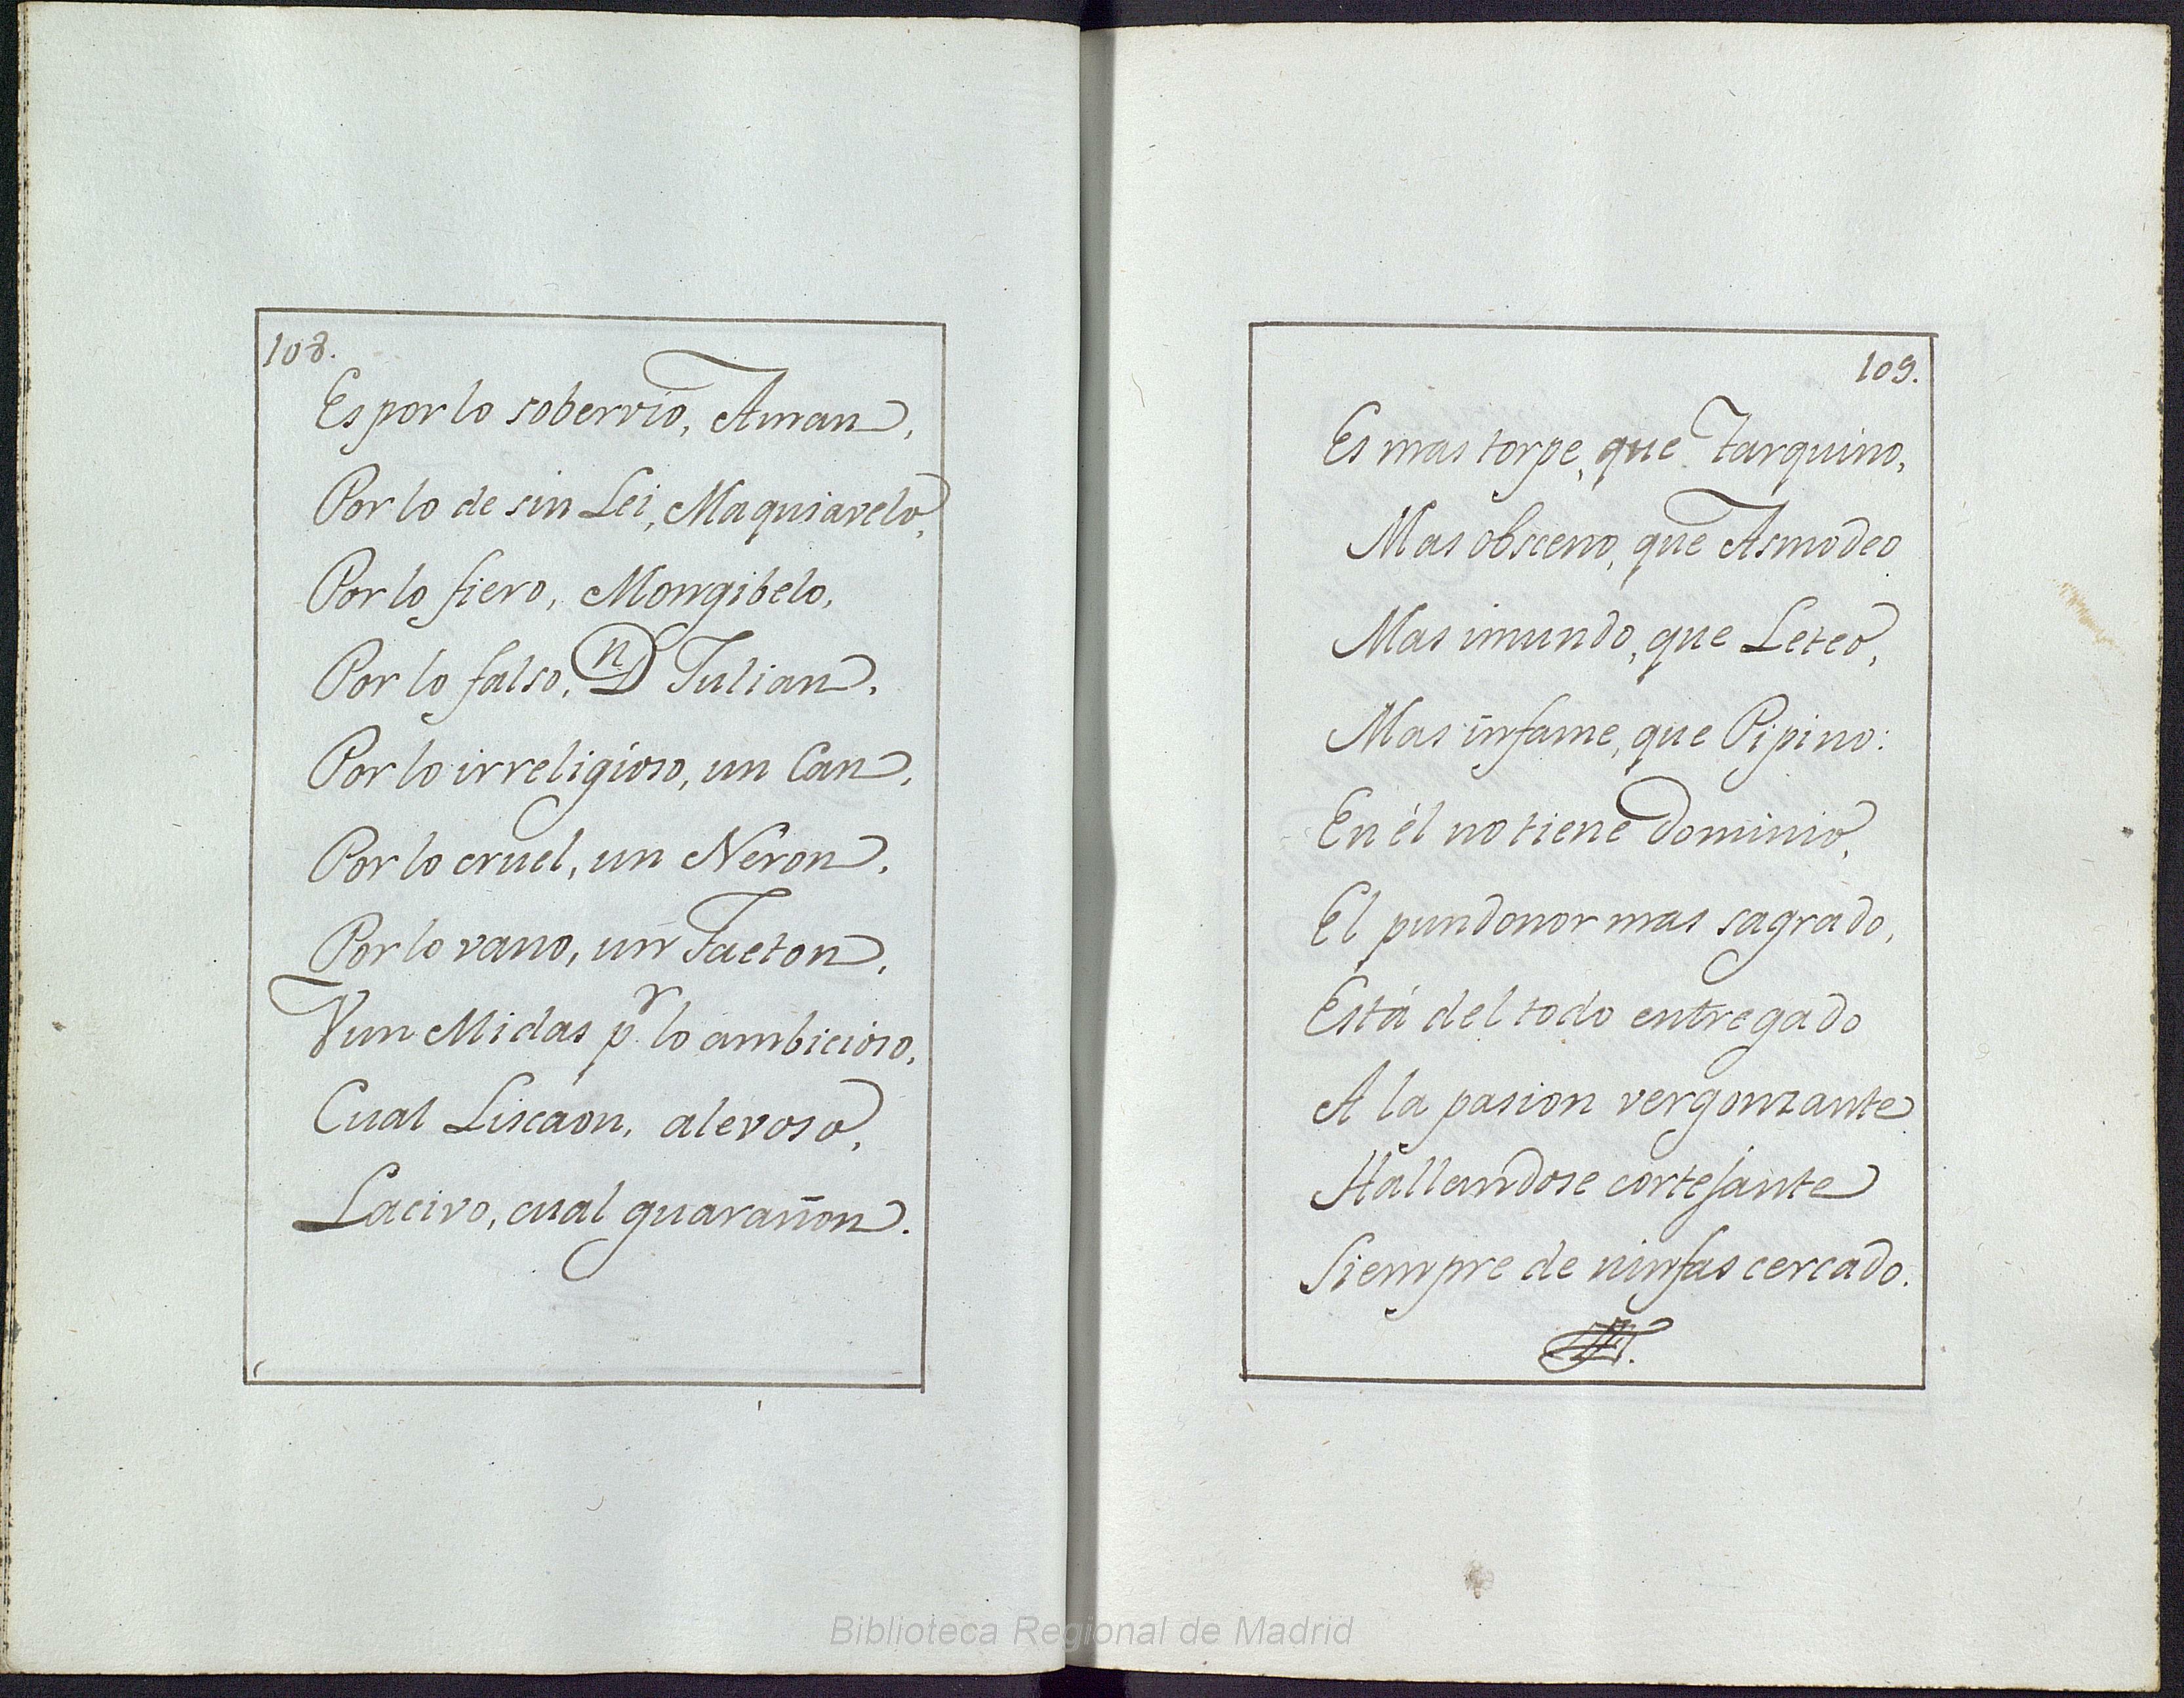 108.
Es por lo sobervio, Aman,
Por lo de sin Lei, Maquiavelo,
Por lo fiero, Mongibelo,
Por lo falso, Dn Julian,
Por lo irreligioso, un Can,
Por lo cruel, un Neron,
Por lo vano, un Faeton,
Y un Midas pr lo ambicioso,
Cual Liscaon, alevoso,
Lacivo, cual guarañon.
109.
Es mas torpe, que Tarquino,
Mas obsceno, que Asmodeo
Mas imundo, que Leteo,
Mas infame, que Pipino:
En él no tiene dominio,
El pundonor mas sagrado,
Está del todo entregado
A la pasion vergonzante
Hallandose cortejante
Siempre de ninfas cercado.
Biblioteca Regional de Madrid